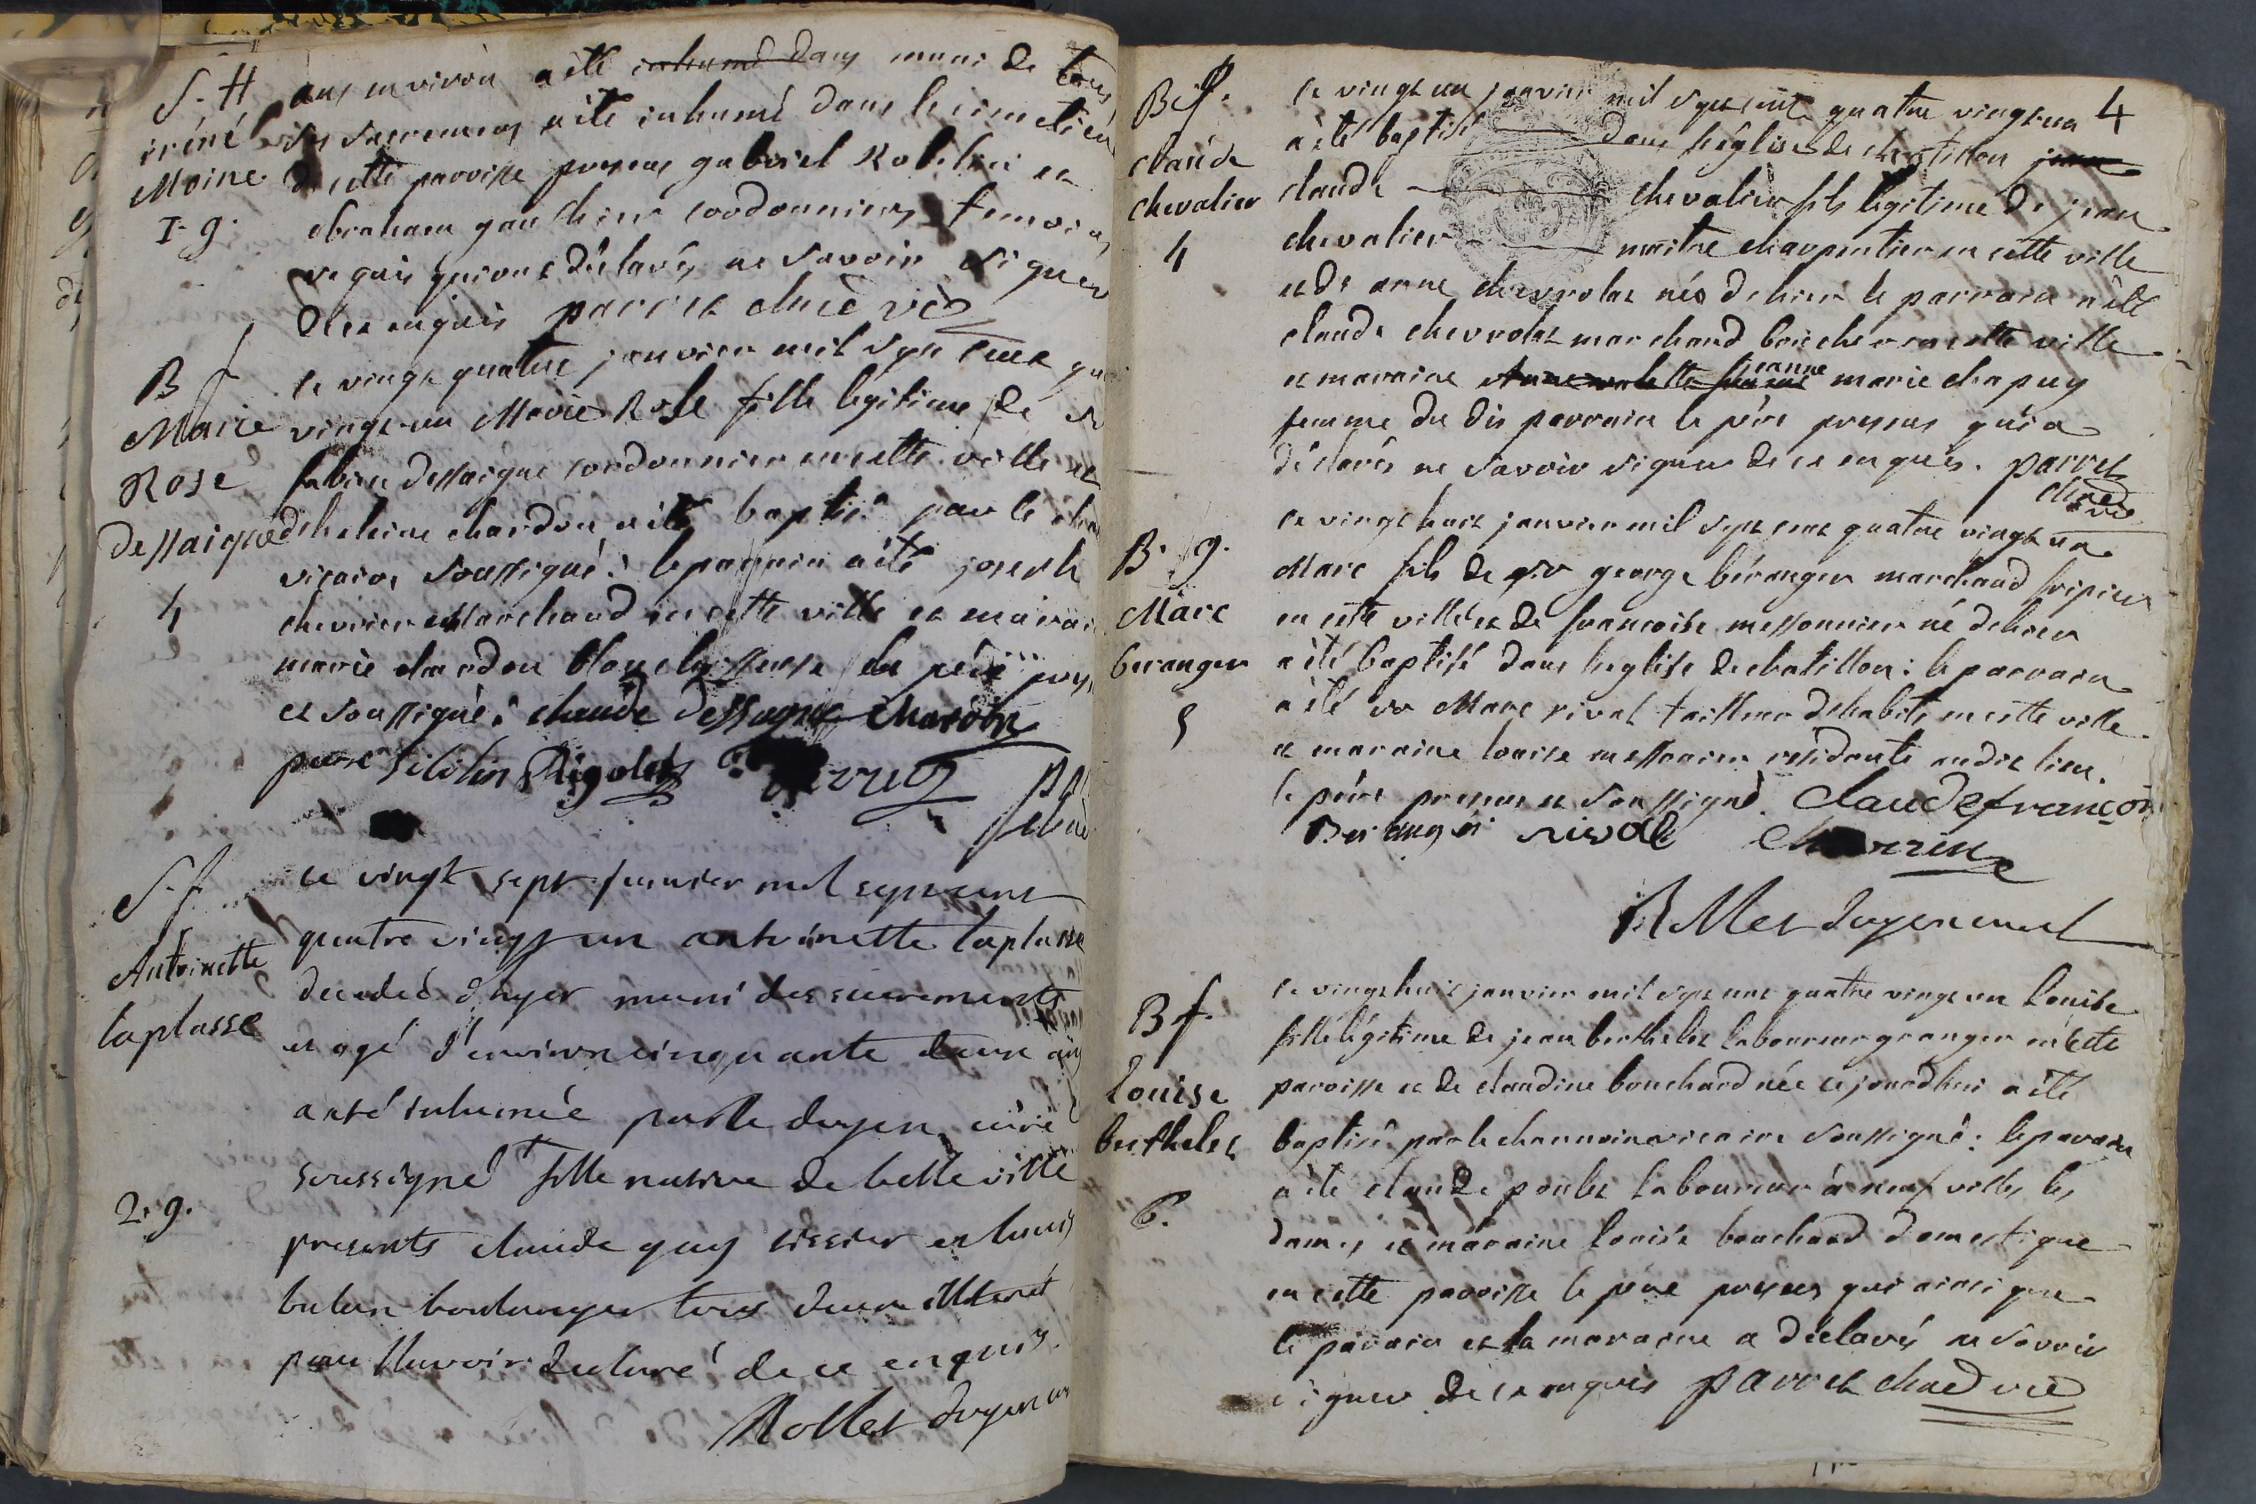 S. H
iréné
Moine
I. g.
ans environ a été inhumé dans muni de tous
ses sacremens a été inhumé dans le cimetière
de cette paroisse presens gabriel Robelin et
abraham gauthier cordonniers temoins
requis qui ont déclarés ne savoir signer
de ce enquis parret chne vic
B f
Marie
Rose
Dessaigne
4
ce vingt quatre janvier mil sept cent qua
vingt un Marie Rose fille legitime de sr
fabien dessaigne cordonnier en cette ville et
d'helaine chardon a été baptisé par le cha
vicaire soussigné: le parrain a été joseph
chevrier Marchand en cette ville et marai
marie chardon blanchisseuse le père pres
et soussigné: claude dessagne chardon
parret
S. f
Antoinette
laplasse
2. g.
ce vingt sept janvier mil sept cent
quatre vingt un antoinette laplasse
decedeé d'hyer muni des sacrements
et agé d'environ cinquante deux ans
a eté inhumée par le doyen curé
soussigné fille native de belleville
presents claude guy tissier et louis
bulan boulanger tous deux illiteré
pour l'avoir declaré de ce enquis.
Rollet doyen cu
4
B. f.
claude
chevalier
4
ce vingt un janvier mil sept cent quatre vingt un
a été baptisé dans l'église de chatillon jean
claude chevalier fils legitime de jean
chevalier maitre charpentier en cette ville
et de anne chevrolat né d'hier le parrain a été
claude chevrolat marchand boucher en cette ville
et maraine jeanne marie chapuy
femme du dit parrain le père presens qui a
déclarés ne savoir signer de ce enquis. parret
chne vic
B. g.
Marc
beranger
5
ce vingt huit janvier mil sept cent quatre vingt un
Marc fils de sr george béranger marchand fripier
en cette ville et de francoise messonnier né d'hier
a été baptisé dans l'eglise de chatillon: le parrain
a été sr Marc rival tailleur d'habits en cette ville
et maraine louise messonier residante audit lieu.
le père presens et soussigné. Claude françois
Beranger rivale
Rollet doyen curé
B f.
louise
berthelet
6.
ce vingt huit janvier mil sept cent quatre vingt un louise
fille légitime de jean berthelet laboureur granger en cette
paroisse et de claudine bouchard née ce jourd'hui a été
baptisé par le channoine vicaire soussigné: le parrain
a été claude poulet laboureur à neuf villes les
dames et maraine louise bouchard domestique
en cette paroisse le père presens qui ainsi que
le parain et la maraine a déclarés ne savoir
signer de ce enquis parret chne vic